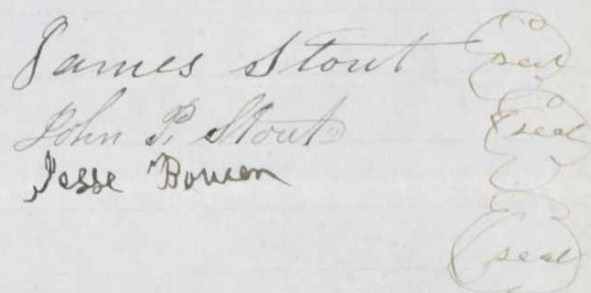 James Stout seal
John P. Stout seal
Jesse Bowen
seal